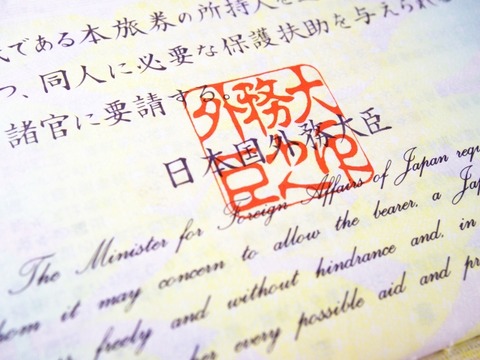 である本旅券の所持人を
つ、同人に必要な保護扶助を与えられ
諸官に要請する。
日本国外務大臣
外務大
臣之印
The Minister for Foreign Affairs of Japan requ
hom it may concern to allow the bearer, a Jap
freely and without hindrance and, in
her every possible aid and pr